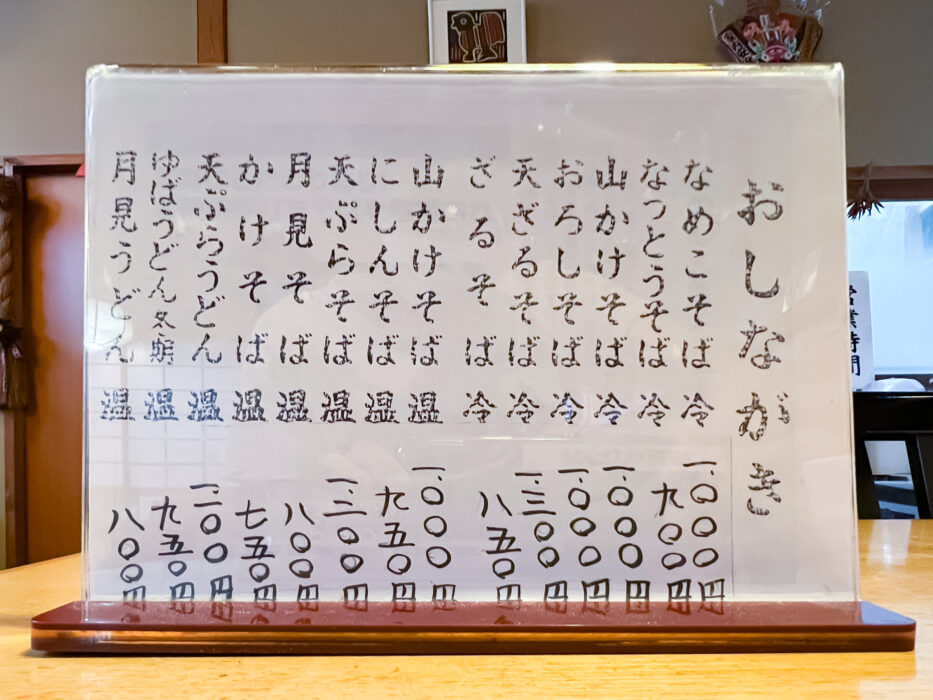 営業時間
おしながき
なめこそば 冷 一、〇〇〇円
なっとうそば 冷 九〇〇円
山かけそば 冷 一、〇〇〇円
おろしそば 冷 一、〇〇〇円
天ざるそば 冷 一、三〇〇円
ざるそば 冷 八五〇円
山かけそば 温 一、〇〇〇円
にしんそば 温 九五〇円
天ぷらそば 温 一、二〇〇円
月見そば 温 八〇〇円
かけそば 温 七五〇円
天ぷらうどん 温 一、二〇〇円
ゆばうどん 温 九五〇円
月見うどん 温 八〇〇円